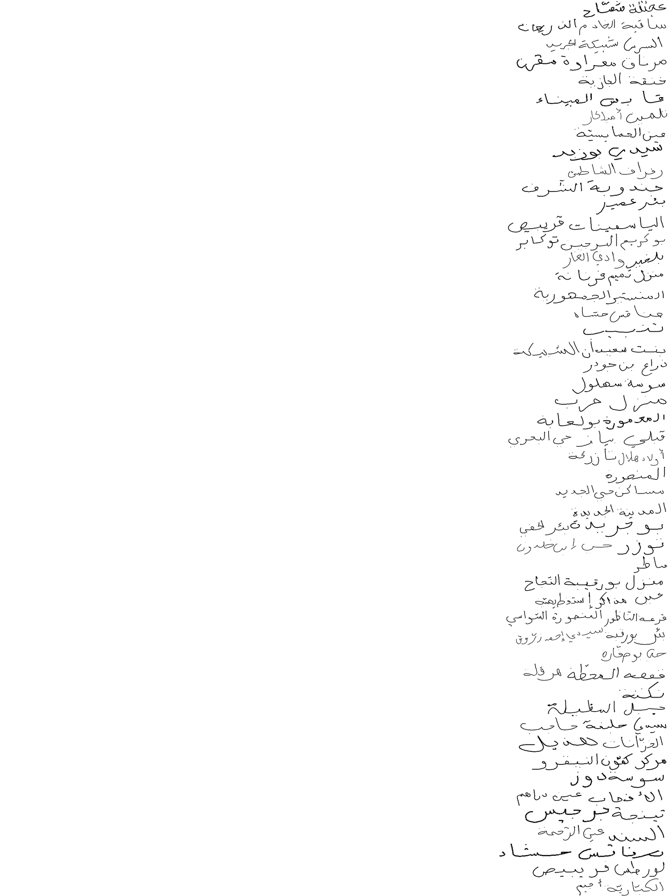 عجنقة شماخ
ساقية الخادم الذريعات
السرس شبيكة الجريد
مرناق معرادة مقرن
خنقة الجازية
قابس الميناء
تلمين أميلكار
عين العمايسية
سيدي بوزيد
رفراف الشاطئ
جندوبة الشرف
بئر عمير
الياسمينات قربص
بوكريم النرجس توكابر
بلخير وادي الغار
منزل تميم فرنانة
المنستير الجمهورية
صفاقس حشاد
تذبيب
بنت سعيدان الشبيكة
دراع بن جودر
سوسة سهلول
منزل حرب
المعمورة بولعابة
قبلي بياز حي البحري
أولاد هلال تازركة
المنصورة
مساكن حي الجديد
المدينة الجديدة
بوجريدة بئر الحفي
توزر حي ابن خلدون
ماطر
منزل بورقيبة النجاح
عين مذاكر
الناظور المنصورة السواسي
بئر بورقبة سيدي أحمد زروق
بوصفارة
قفصة المحطة هرقلة
تكنة
جبل
سيدي حاجب
العرانات هذيل
مركز كمون النيفرو
سوسة دوز
عين دراهم
تينجة جرجيس
السند حي الرحمة
صفاقس حشاد
قربيص
الكتارية